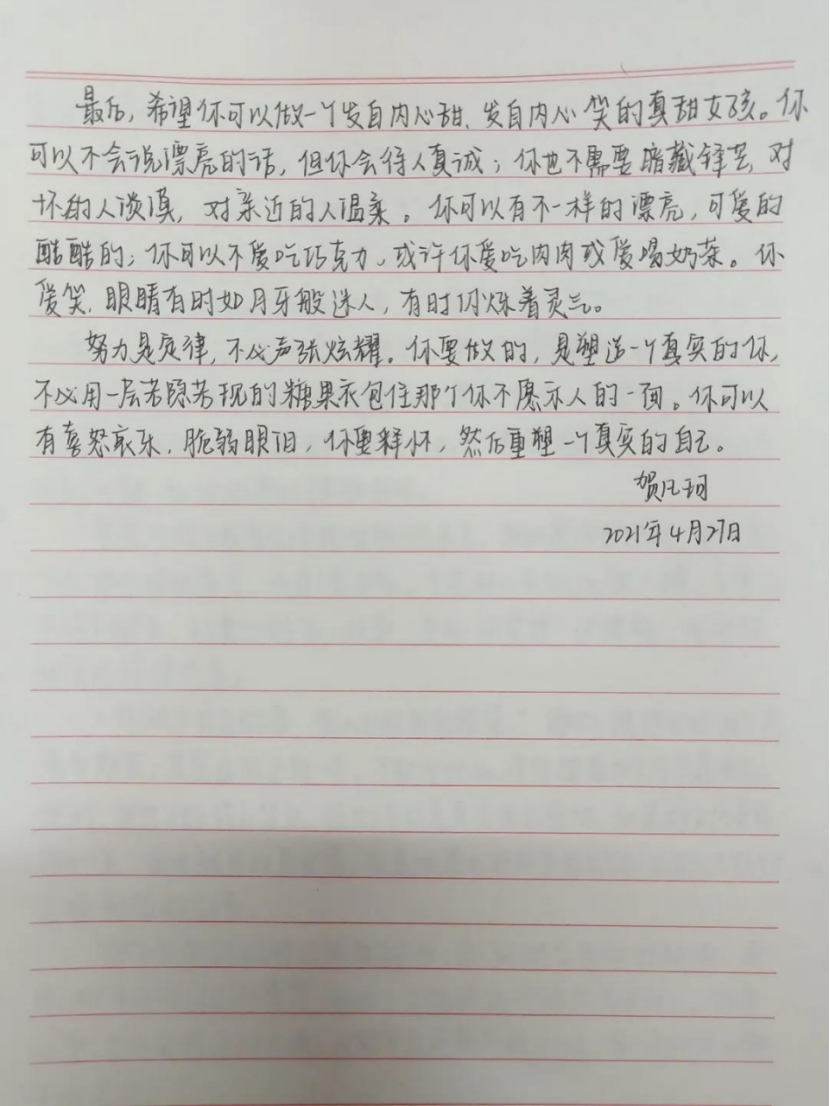 最后，希望你可以做一个发自内心甜、发自内心笑的真甜女孩。你
可以不会说漂亮的话，但你会待人真诚；你也不需要暗藏锋芒，对
坏的人淡漠，对亲近的人温柔。你可以有不一样的漂亮，可爱的
酷酷的；你可以不爱吃巧克力，或许你爱吃肉肉或爱喝奶茶。你
爱笑，眼睛有时如月牙般迷人，有时闪烁着灵气。
努力是定律，不必声张炫耀。你要做的，是塑造一个真实的你，
不必用一层若隐若现的糖果衣包住那个你不愿示人的一面。你可以
有喜怒哀乐，脆弱眼泪，你要释怀，然后重塑一个真实的自己。
贺凡珂
2021年4月27日